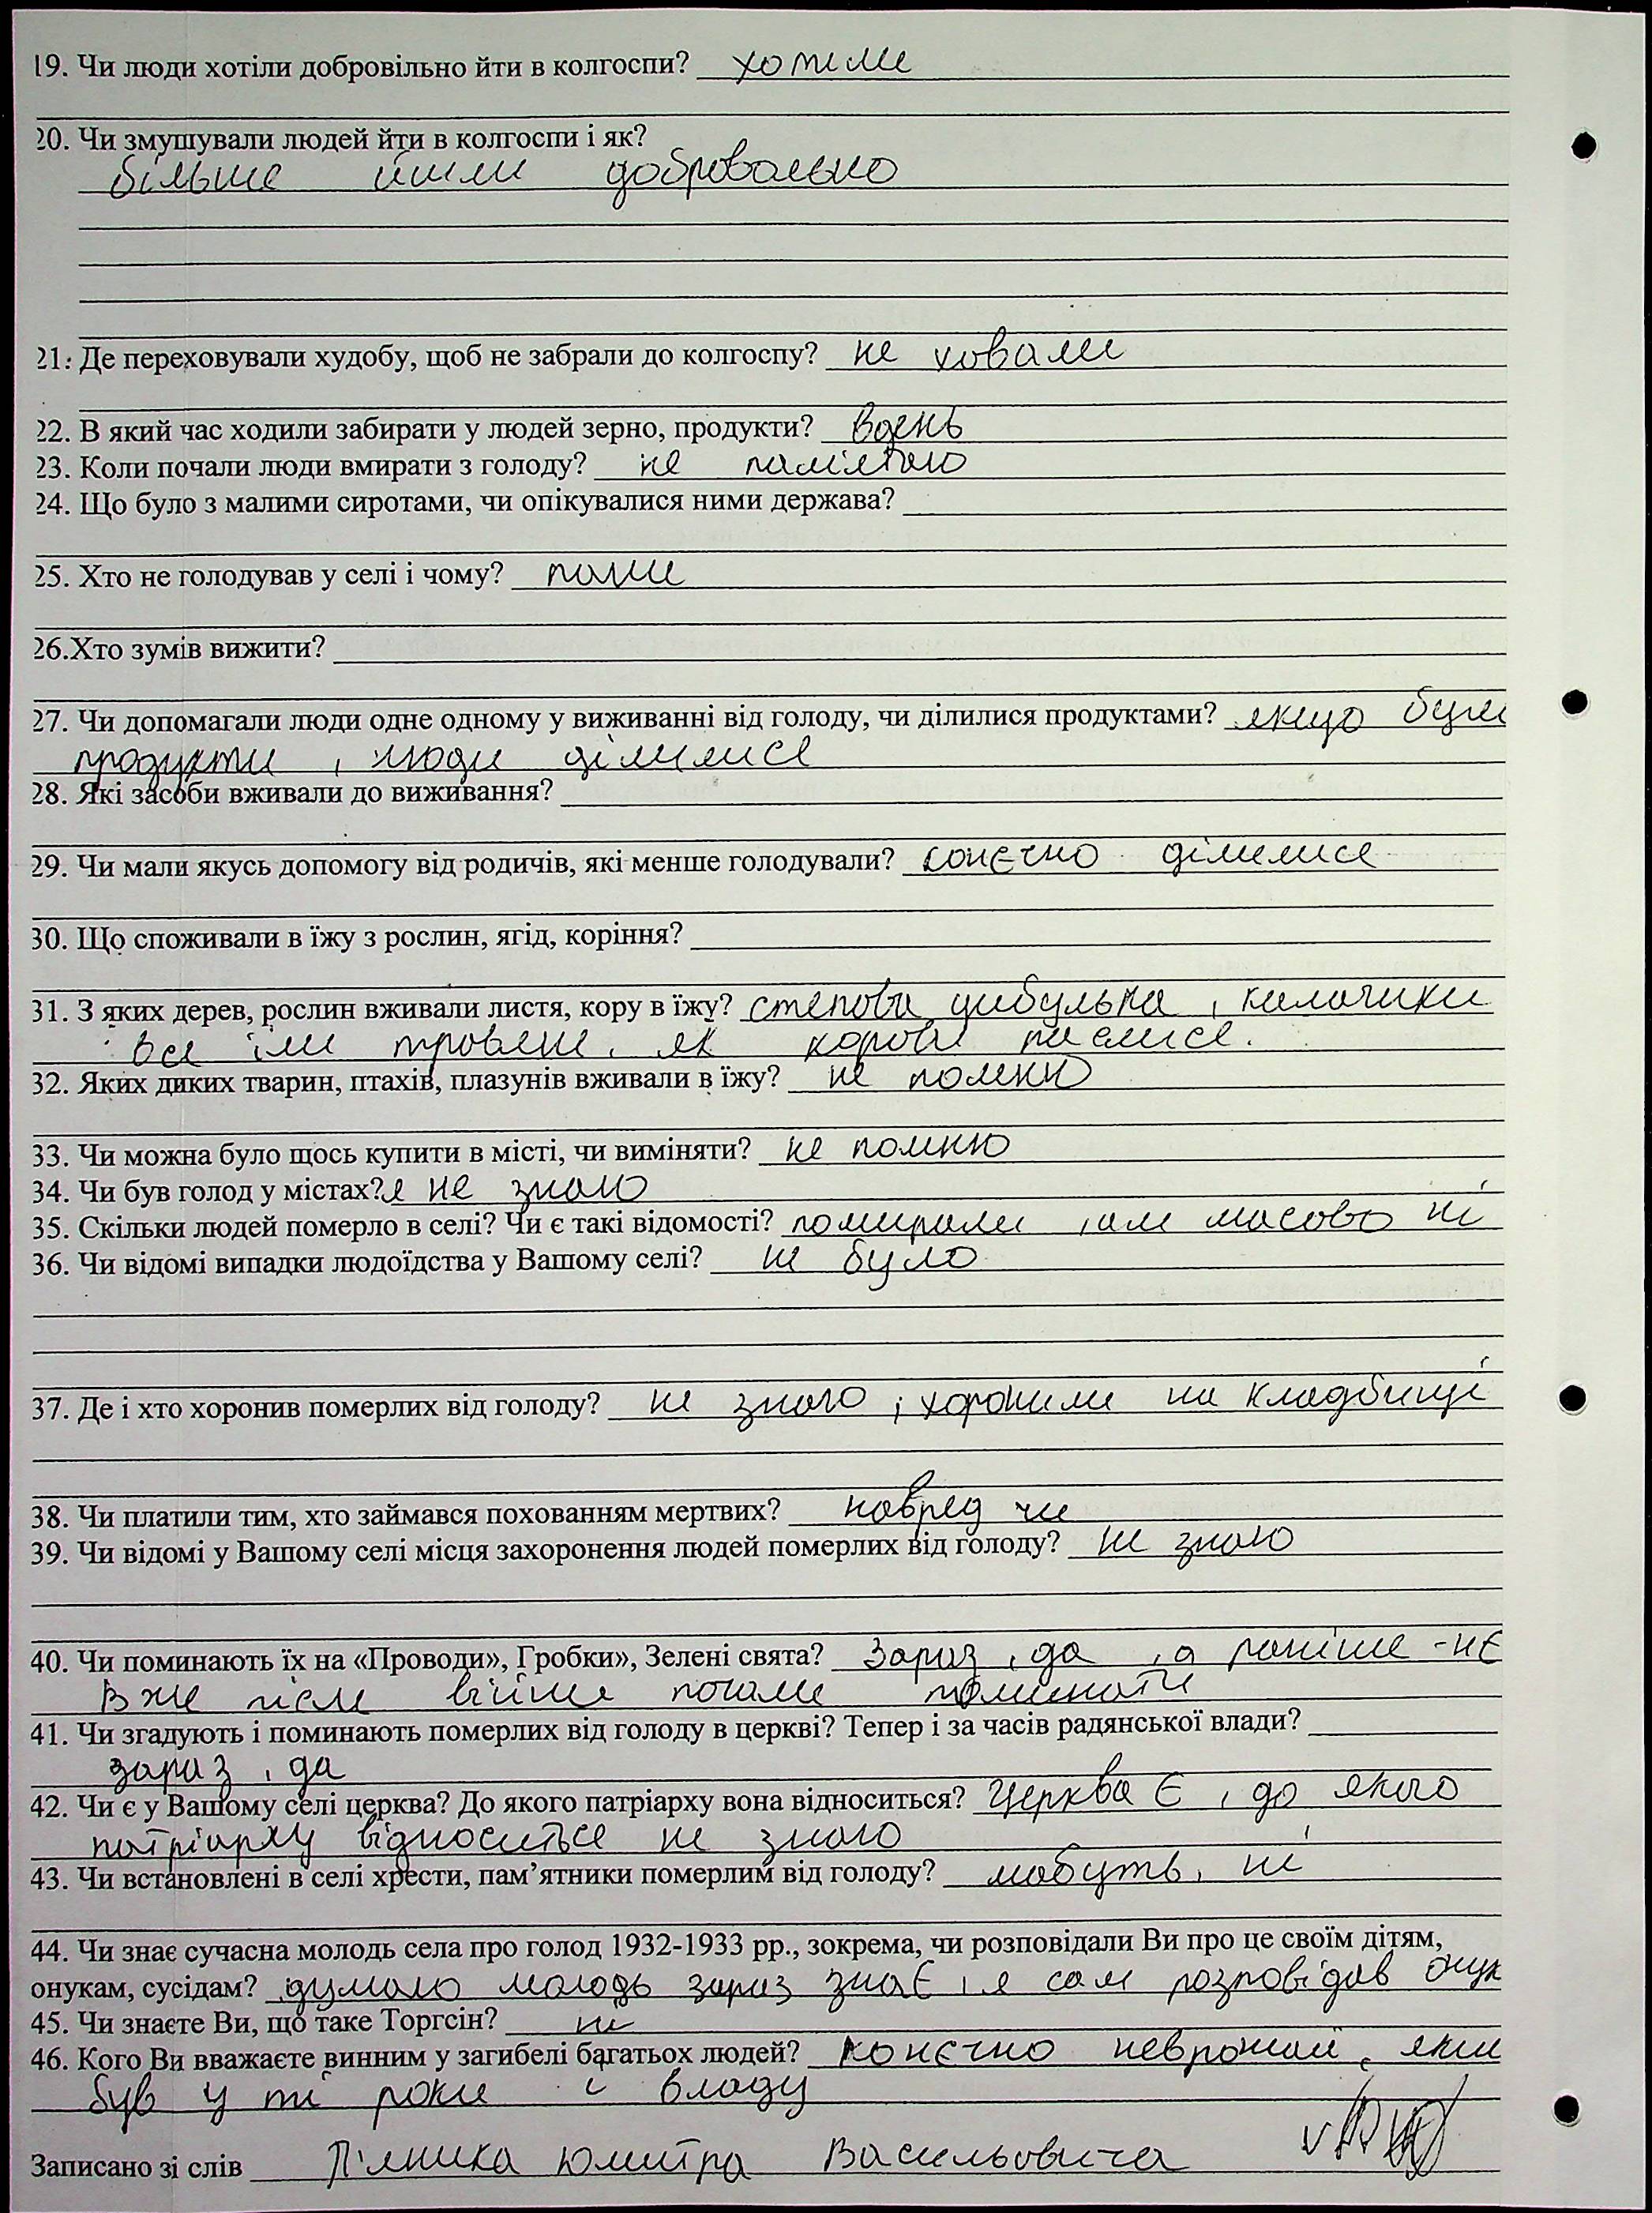 19. Чи люди хотіли добровільно йти в колгоспи? хотіли
20. Чи змушували людей йти в колгоспи і як?
більше йшли добровольно
21. Де переховували худобу, щоб не забрали до колгоспу? не ховали
22. В який час ходили забирати у людей зерно, продукти? вдень
23. Коли почали люди вмирати з голоду? не пам'ятаю
24. Що було з малими сиротами, чи опікувалися ними держава?
25. Хто не голодував у селі і чому?
26.Хто зумів вижити?
27. Чи допомагали люди одне одному у виживанні від голоду, чи ділилися продуктами? якщо були
продукти, люди ділилися
28. Які засоби вживали до виживання?
29. Чи мали якусь допомогу від родичів, які менше голодували? конєчно ділилися
30. Що споживали в їжу з рослин, ягід, коріння?
31. З яких дерев, рослин вживали листя, кору в їжу? степова цибулька, калачики
всі їли, як корови паслися.
32. Яких диких тварин, птахів, плазунів вживали в їжу? не помню
33. Чи можна було щось купити в місті, чи виміняти? не помню
34. Чи був голод у містах? я не знаю
35. Скільки людей померло в селі? Чи є такі відомості? помирали, але масово ні
36. Чи відомі випадки людоїдства у Вашому селі? не було
37. Де і хто хоронив померлих від голоду? не знаю, хоронили на кладбищі
38. Чи платили тим, хто займався похованням мертвих? навряд чи
39. Чи відомі у Вашому селі місця захоронення людей померлих від голоду? не знаю
40. Чи поминають їх на «Проводи», Гробки», Зелені свята? Зараз, да, а раніше - нє
Вже після війни почали поминати
41. Чи згадують і поминають померлих від голоду в церкві? Тепер і за часів радянської влади?
зараз, да
42. Чи є у Вашому селі церква? До якого патріарху вона відноситься? Церква є, до якого
патріарху відноситься не знаю
43. Чи встановлені в селі хрести, пам'ятники померлим від голоду? мабуть, ні
44. Чи знає сучасна молодь села про голод 1932-1933 рр., зокрема, чи розповідали Ви про це своїм дітям,
онукам, сусідам? думаю молодь зараз знає, я сам розповідав онук
45. Чи знаєте Ви, що таке Торгсін? ні
46. Кого Ви вважаєте винним у загибелі багатьох людей? конєчно неврожай, яки
був у ті роки і владу
Записано зі слів Васильовича